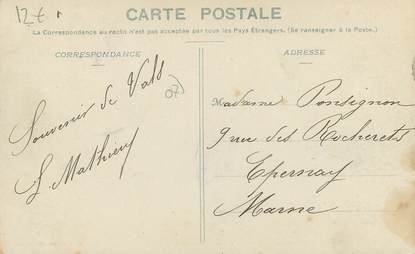 12€
CARTE POSTALE
La Correspondance au recto n'est pas acceptée par tous les Pays Étrangers. (Se renseigner à la Poste.)
CORRESPONDANCE
Souvenir de Vals
L. Mathieu
07
ADRESSE
Madame Ponsignon
9 rue des Rocherets
Epernay
Marne